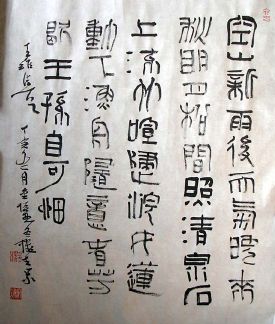 空山新雨後天氣晚來
秋明月松間照清泉石
上流竹喧歸浣女蓮
動下漁舟隨意春芳
歇王孫自可留
丁亥 月